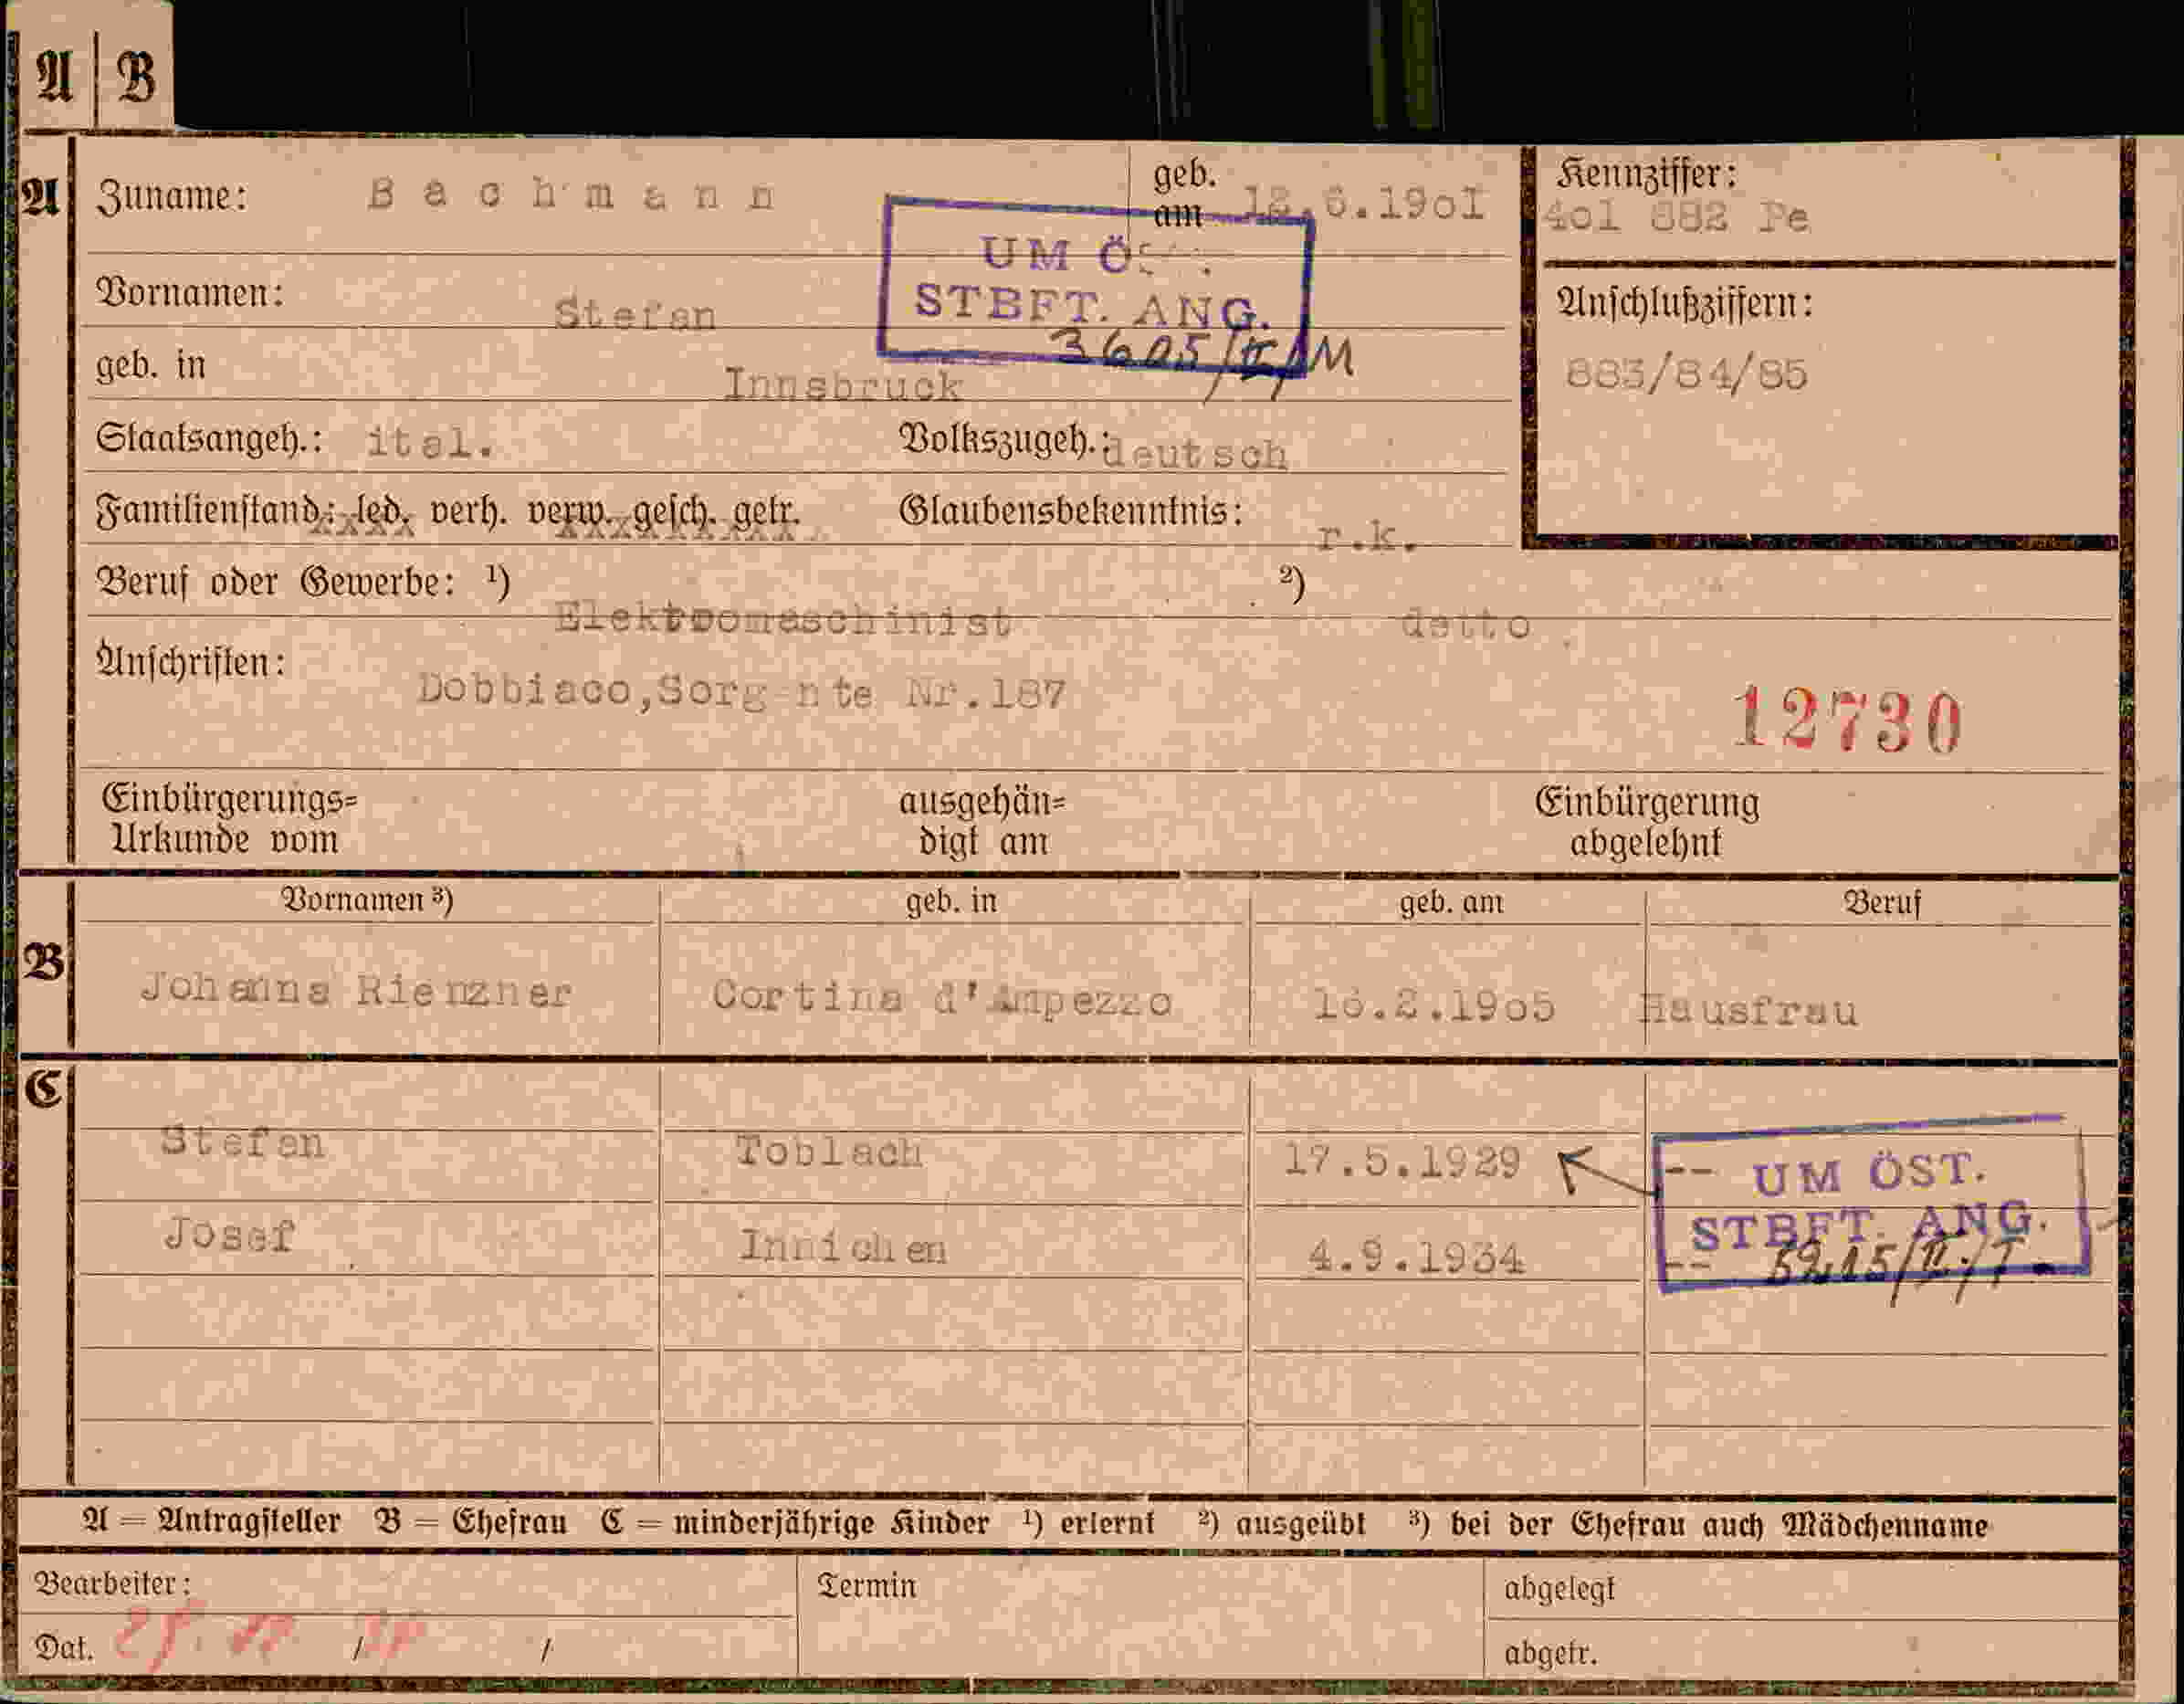 A | B
A Zuname: Bachmann geb. am 12.6.19o1
Kennziffer:
4o1 882 Pe
UM Ö
STBFT. ANG.
3605/II/M
Vornamen: Stefan
Anschlußziffern:
883/84/85
geb. in Innsbruck
Staatsangeh.: ital. Volkszugeh.: deutsch
Familienstand: led. verh. verw. gesch. getr. Glaubensbekenntnis: r.k.
Beruf oder Gewerbe: ¹) Elektromaschinist ²) detto
Anschriften: Dobbiaco, Nr.187
12730
Einbürgerungs= ausgehän= Einbürgerung
Urkunde vom digt am abgelehnt
Vornamen ³) geb. in geb. am Beruf
B Johanna Rienzner Cortina d'Ampezzo 16.2.19o5 Hausfrau
C
Stefan Toblach 17.5.1929 --
Josef Innichen 4.9.1934 --
UM ÖST.
STBFT. ANG.
5215/II/T
A = Antragsteller B = Ehefrau C = minderjährige Kinder ¹) erlernt ²) ausgeübt ³) bei der Ehefrau auch Mädchenname
Bearbeiter: Termin abgelegt
Dat. / / abgetr.